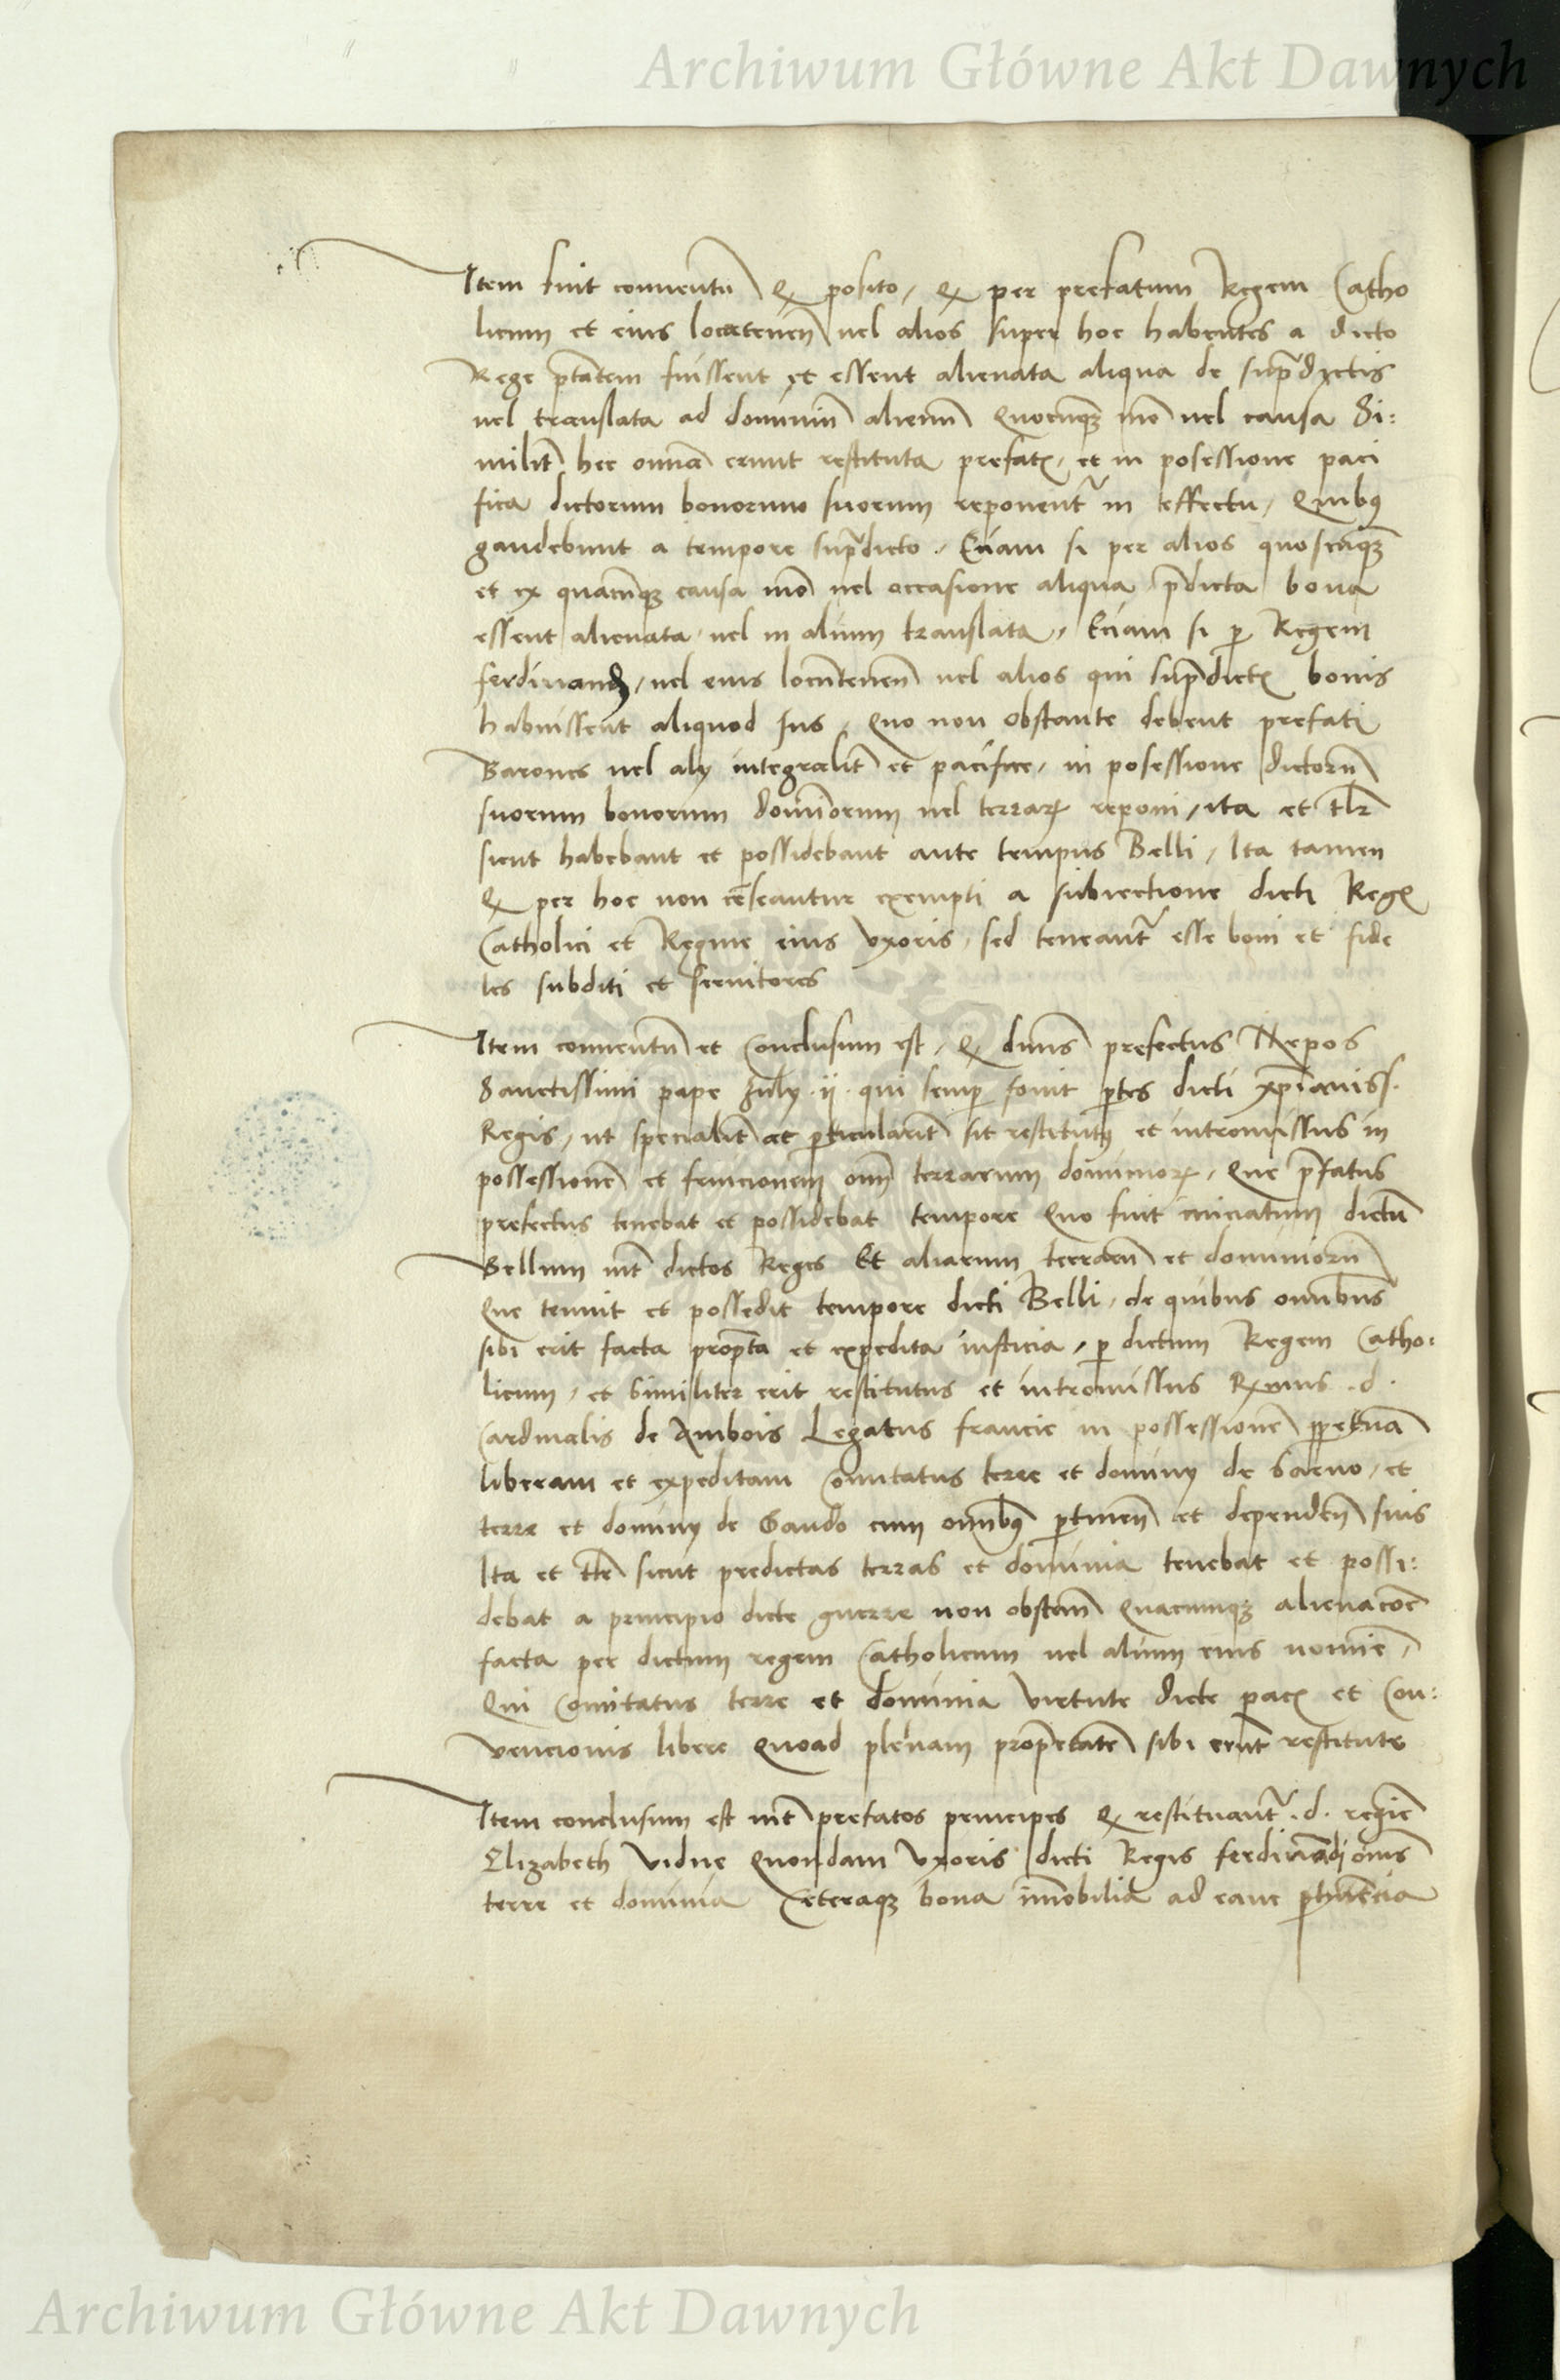 Archiwum Główne Akt Dawnych
Item fuit conuentũ Qʒ posito / Qʒ per prefatum Regem Catho
licum et eius locatenen̄ uel alios super hoc habentes a dicto
Rege p̄tātem fuissent et essent alienata aliqua de sup̄dictis
uel translata ad dominiũ alienũ Quocũqʒ mō uel causa Si:
milit̄ hec omnā erunt restituta prefatꝭ / et in posessione paci
fica dictorum bonorum suorum reponent᷑ in effectu / Quibꝰ
gaudebunt a tempore sup̄dicto / Etiam si per alios quoscũqʒ
et ex quacũqʒ causa mō uel occasione aliqua p̄dicta bona
essent alienata / uel in alium translata / Etiam si ꝑ Regem
ferdinandʒ / uel eius locũtenen̄ uel alios qui sup̄dictꝭ bonis
habuissent aliquod Jus / Quo non obstante debent prefati
Barones uel alij integralit̄ et pacifice / in posessione dictorũ
suorum bonorum dominorum uel terrarꝝ reponi / ita et tlr̄
sicut habebant et possidebant ante tempus Belli / Ita tamen
Qʒ per hoc non cēseantur exempti a subiectione dicti Regꝭ
Catholici et Regine eius Vxoris / sed teneant᷑ esse boni et fide
les subditi et seruitores
Item conuentũ et Conclusum est / Qʒ dnūs prefectus Nepos
Sanctissimi pape July · ij · qui semꝑ fouit ꝑtes dicti xp̄ianiss.
Regis / ut specialit̄ et ꝑticularit̄ sit restitutꝰ et intromissus in
possessionē et fruicionem om̄ terrarum dominiorꝝ / Que p̄fatus
prefectus tenebat et possidebat tempore Quo fuit iniciatum dictũ
Bellum int̄ dictos Reges Et aliarum terrarũ et dominiorũ
Que tenuit et possedit tempore dicti Belli / de quibus omnibus
sibi erit facta promp̄ta et expedita iusticia / ꝑ dictum Regem Catho:
licum / et Similiter erit restitutus et intromissus Rx̄mus . d .
Cardinalis de Ambois Legatus francie in possessionē ꝑpetuā
liberam et expeditam Comitatus terre et dominij de Sarno / et
terre et dominij de Gaudo cum omnibꝰ ꝑtinen̄ et dependen̄ suis
Ita et tlr̄ sicut predictas terras et dominia tenebat et possi:
debat a principio dicte guerre non obstan̄ Quacumqʒ alienacōē
facta per dictum regem Catholicum uel alium eius nomīe /
Qui Comitatus terre et dominia virtute dicte pacꝭ et Con:
vencionis libere Quoad plenam propʳietatē sibi erũt restitute
Item conclusum est int̄ prefatos principes Qʒ restituant᷑ . d . regīe
Elizabeth Vidue Quondam Vxoris dicti Regis ferdinādi om̄s
terre et dominia Ceteraqʒ bona im̄obilia ad eam ꝑtinēcia
Archiwum Główne Akt Dawnych